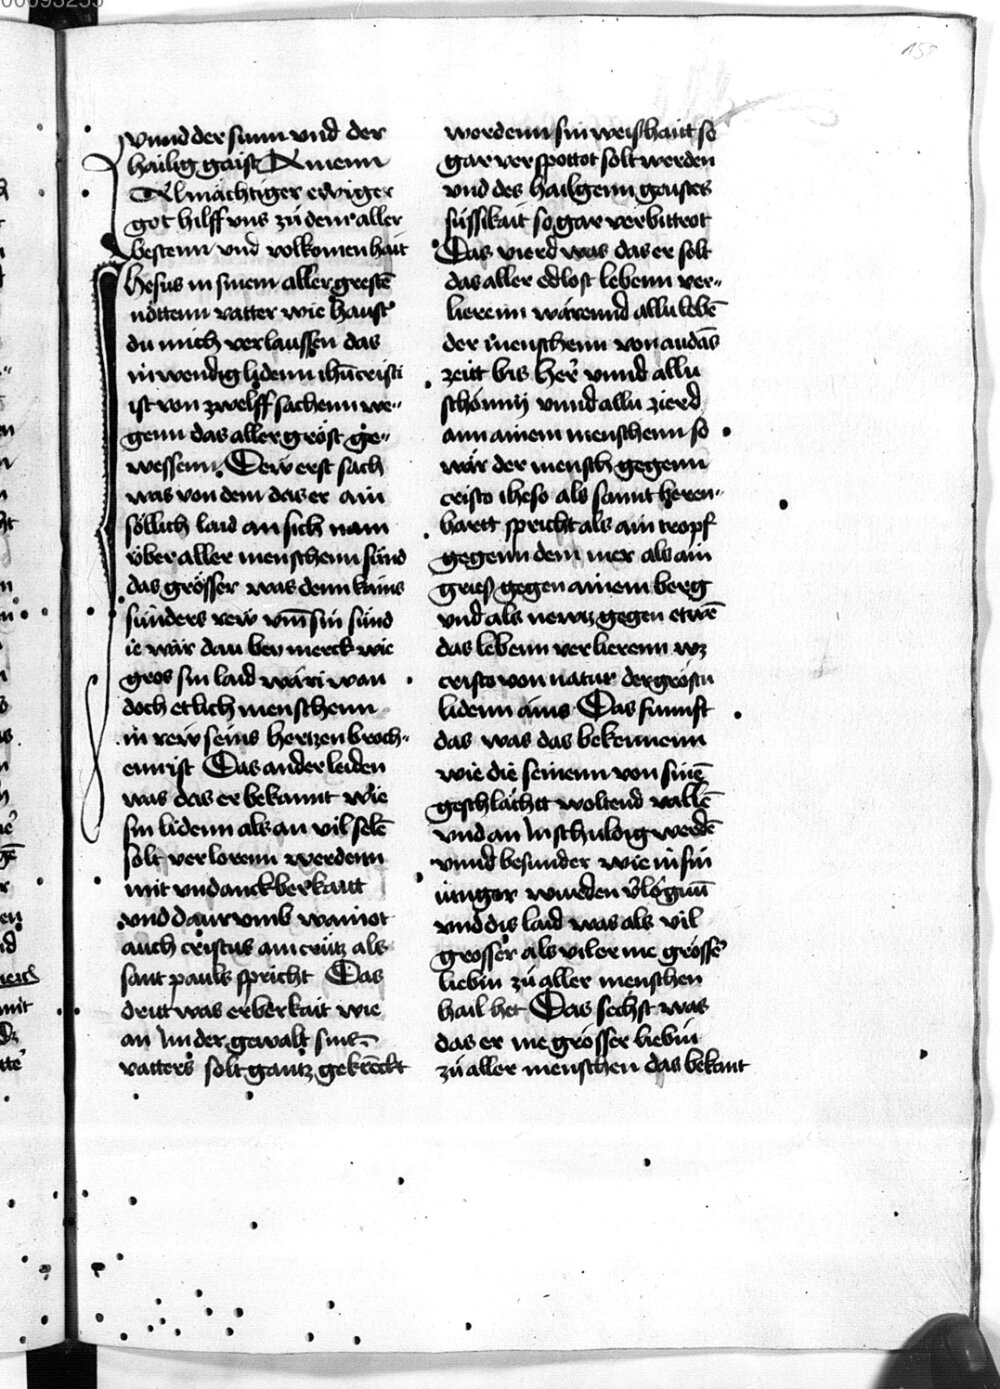 00093255
155
vnnd der sunn vnd der
hailig gaist Amenn
Almächtiger ewiger
got hilff vns zů dem aller
bestenn vnd volkomenhait
Jhesus in sinem aller grestē
nöttenn vatter wie haust
du mich verlaussen das
inwendig lidenn ihū cristi
ist von zwelff sachenn we-
genn das aller gröst ge-
wessenn Dew erst sach
was von dem das er ain
söllich laid an sich nam
über aller menschenn sünd
das grösser was denn kains
sünders rew vm̄ sin sünd
ie wär dau bey merck wie
gros sin laid wäri wan
doch etlich menschenn
in rew seins hertzen broch-
enn ist Das ander leiden
was das er bekannt wie
sin lidenn als an vil selē
solt verlorenn werdenn
mit vndanckberkaitt
vnd daur vmb wainot
auch cristus am crütz als
sant pauls spricht Das
drit was erberkait wie
an in der gewalt sins
vatters solt gantz gekreckt
wordenn sin weishaitt so
gar verspottot solt werden
vnd des hailgenn gaistes
süssikait so gar verbittrot
Das vierd was das er solt
das aller edlost lebenn ver-
lierenn wärennd allu lebē
der menschenn von audās
zeitt bis her vnnd allu
schönny vnnd allu zierd
ann ainem menschenn so
wär der mensch gegenn
cristo iheso als sannt beren-
hartt spricht als ain tropf
gegenn dem mer als ain
gries gegen ainem berg
vnd als newtz gegen etwē
das lebenn verlierenn wz
cristo von natur der gröstn
lidenn ains Das funnft
das was das bekennenn
wie die seinenn von sinē
geschlächtt woltend vallē
vnd an im schuldig werdē
vnnd besunder wie in sin
iunger wurden v̄lognn
vnd dis laid was als vil
grosser als vil er me grössē
liebin zů aller menschen
hail het Das sechst was
das er me grösser liebin
zů aller menschen das bekant